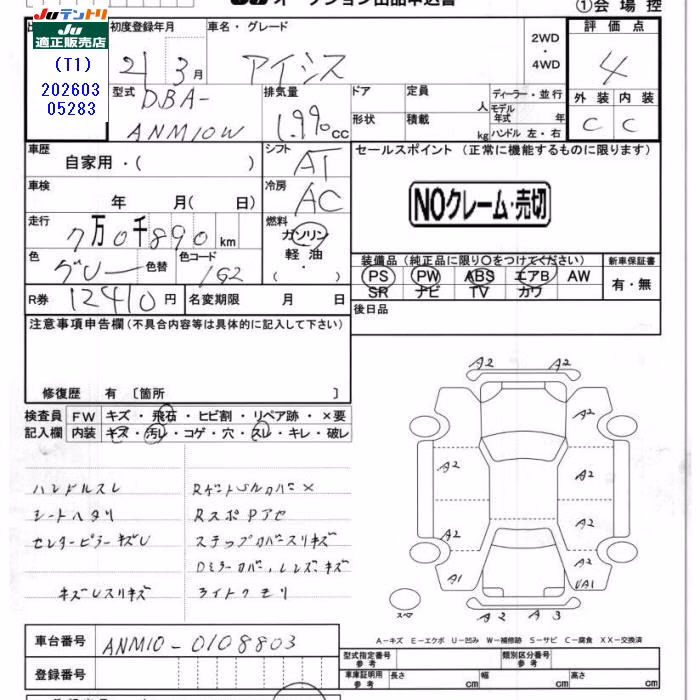 JU オークション出品申込書
①会場控
JUテントリ
適正販売店
(T1)
202603
05283
初度登録年月
21 3月
車名・グレード
アイシス
2WD・4WD
評価点
4
外装 内装
C C
型式
DBA-
ANM10W
排気量
1.99cc
ドア
定員 人
ディーラー・並行
形状
積載 kg
モデル年式 年
ハンドル 左・右
車歴
自家用・( )
シフト
AT
セールスポイント (正常に機能するものに限ります)
NOクレーム・売切
車検
年 月( 日)
冷房
AC
走行
7万0千890km
燃料
ガソリン
軽油・
( )
色
グレー
色替
色コード
1G2
装備品 (純正品に限り○をつけてください)
PS PW ABS エアB AW
SR ナビ TV カワ
新車保証書
有・無
R券
12410円
名変期限 月 日
後日品
注意事項申告欄(不具合内容等は具体的に記入して下さい)
修復歴 有〔箇所 〕
検査員記入欄
FW キズ・飛石・ヒビ割・リペア跡・×要
内装 キズ・汚レ・コゲ・穴・スレ・キレ・破レ
ハンドルスレ
シートヘタリ
センターピラーキズU
キズレスリキズ
RゲートSルカバー×
RスポPアセ
ステップカバースリキズ
Dミラーカバー、レンズ、キズ
ライトクモリ
A2 A2
A2
A2 A2
A2 A2
A1 UA1
A2 A3
スペ
A-キズ E-エクボ U-凹み W-補修跡 S-サビ C-腐食 XX-交換済
車台番号
ANM10-0108803
登録番号
型式指定番号 参考
類別区分番号 参考
車庫証明用 参考
長さ cm
幅 cm
高さ cm